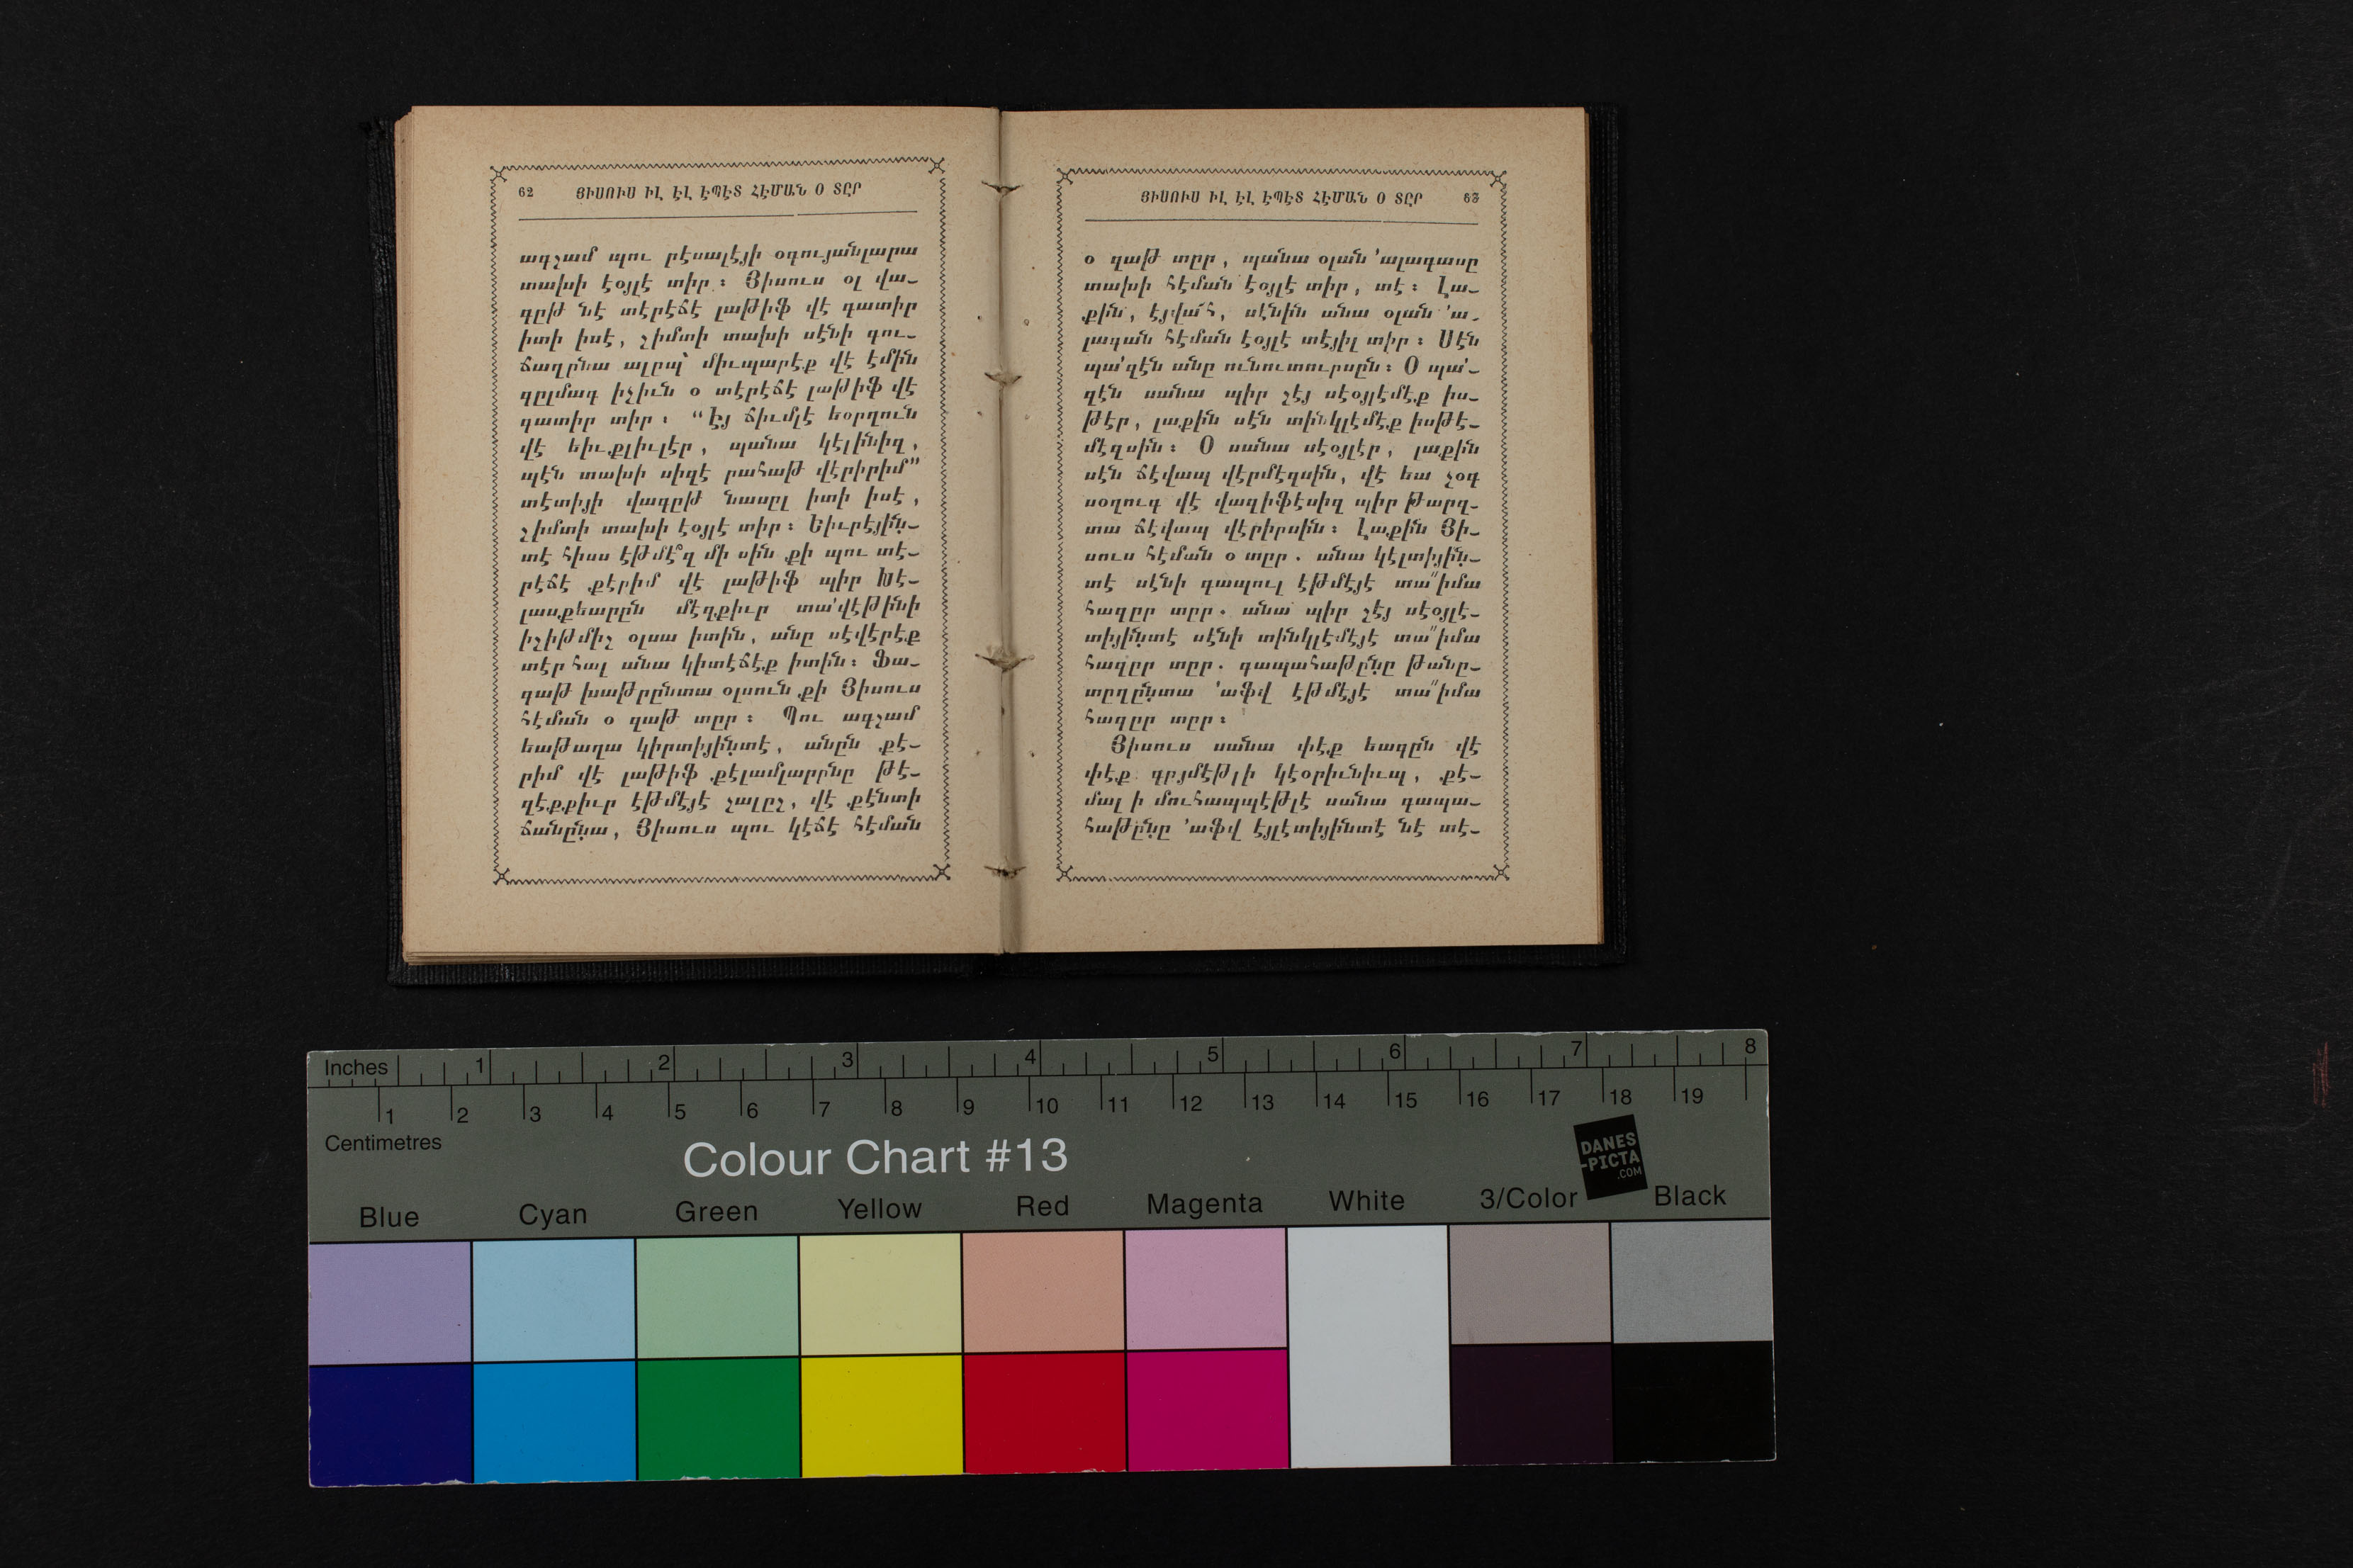 62 ՅԻՍՈՒՍ ԻԼ ԷԼ ԷՊԷՏ ՀԷՄԱՆ Օ ՏԸՐ
ագշամ պու րէսալէյի օգույանլարա
տախի էօյլէ տիր ։ Յիսուս օլ վա-
գըթ նէ տէրէճէ լաթիֆ վէ գատիր
իտի իսէ, շիմտի տախի սէնի գու-
ճաղընա ալըպ՝ միւպարէք վէ էմին
գըլմագ իչիւն օ տէրէճէ լաթիֆ վէ
գատիր տիր ։ “Էյ ճիւմլէ եօրղուն
վէ եիւքլիւլէր, պանա կէլինիզ,
պէն տախի սիզէ րահաթ վէրիրիմ”
տէտիյի վագըթ նասըլ իտի իսէ,
շիմտի տախի էօյլէ տիր ։ Եիւրէյին-
տէ հիսս էթմէ՞զ մի սին քի պու տէ-
րէճէ քէրիմ վէ լաթիֆ պիր Խէ-
լասքեարըն մէզքիւր տա՛վէթինի
իչիթմիշ օլսա իտին, անը սէվէրէք
տէր հալ անա կիտէճէք իտին ։ Ֆա-
գաթ խաթըրընտա օլսուն քի Յիսուս
հէման օ զաթ տըր ։ Պու ագշամ
եաթաղա կիրտիյինտէ, անըն քէ-
րիմ վէ լաթիֆ քէլամլարընը թէ-
զէքքիւր էթմէյէ չալըշ, վէ քէնտի
ճանընա, Յիսուս պու կէճէ հէման
ՅԻՍՈՒՍ ԻԼ ԷԼ ԷՊԷՏ ՀԷՄԱՆ Օ ՏԸՐ 63
օ զաթ տըր, պանա օլան ՚ալագասը
տախի հէման էօյլէ տիր, տէ ։ Լա-
քին, էյվահ, սէնին անա օլան ՚ա-
լագան հէման էօյլէ տէյիլ տիր ։ Սէն
պա՛զէն անը ունուտուրսըն ։ Օ պա՛-
զէն սանա պիր շէյ սէօյլէմէք իս-
թէր, լաքին սէն տինկլէմէք իսթէ-
մէզսին ։ Օ սանա սէօյլէր, լաքին
սէն ճէվապ վէրմէզսին, վէ եա չօգ
սօղուգ վէ վազիֆէսիզ պիր թարզ-
տա ճէվապ վէրիրսին ։ Լաքին Յի-
սուս հէման օ տըր . անա կէլտիյին-
տէ սէնի գապուլ էթմէյէ տա՛՛իմա
հազըր տըր . անա պիր շէյ սէօյլէ-
տիյինտէ սէնի տինկլէմէյէ տա՛՛իմա
հազըր տըր . գապահաթընը թանը-
տըղընտա ՚աֆվ էթմէյէ տա՛՛իմա
հազըր տըր ։
Յիսուս սանա փէք եագըն վէ
փէք գըյմէթլի կէօրիւնիւպ, քէ-
մալ ի մուհապպէթլէ սանա գապա-
հաթընը ՚աֆվ էյլէտիյինտէ նէ տէ-
Inches 1 2 3 4 5 6 7 8
1 2 3 4 5 6 7 8 9 10 11 12 13 14 15 16 17 18 19
Centimetres
Colour Chart #13
DANES
-PICTA
.COM
Blue Cyan Green Yellow Red Magenta White 3/Color Black